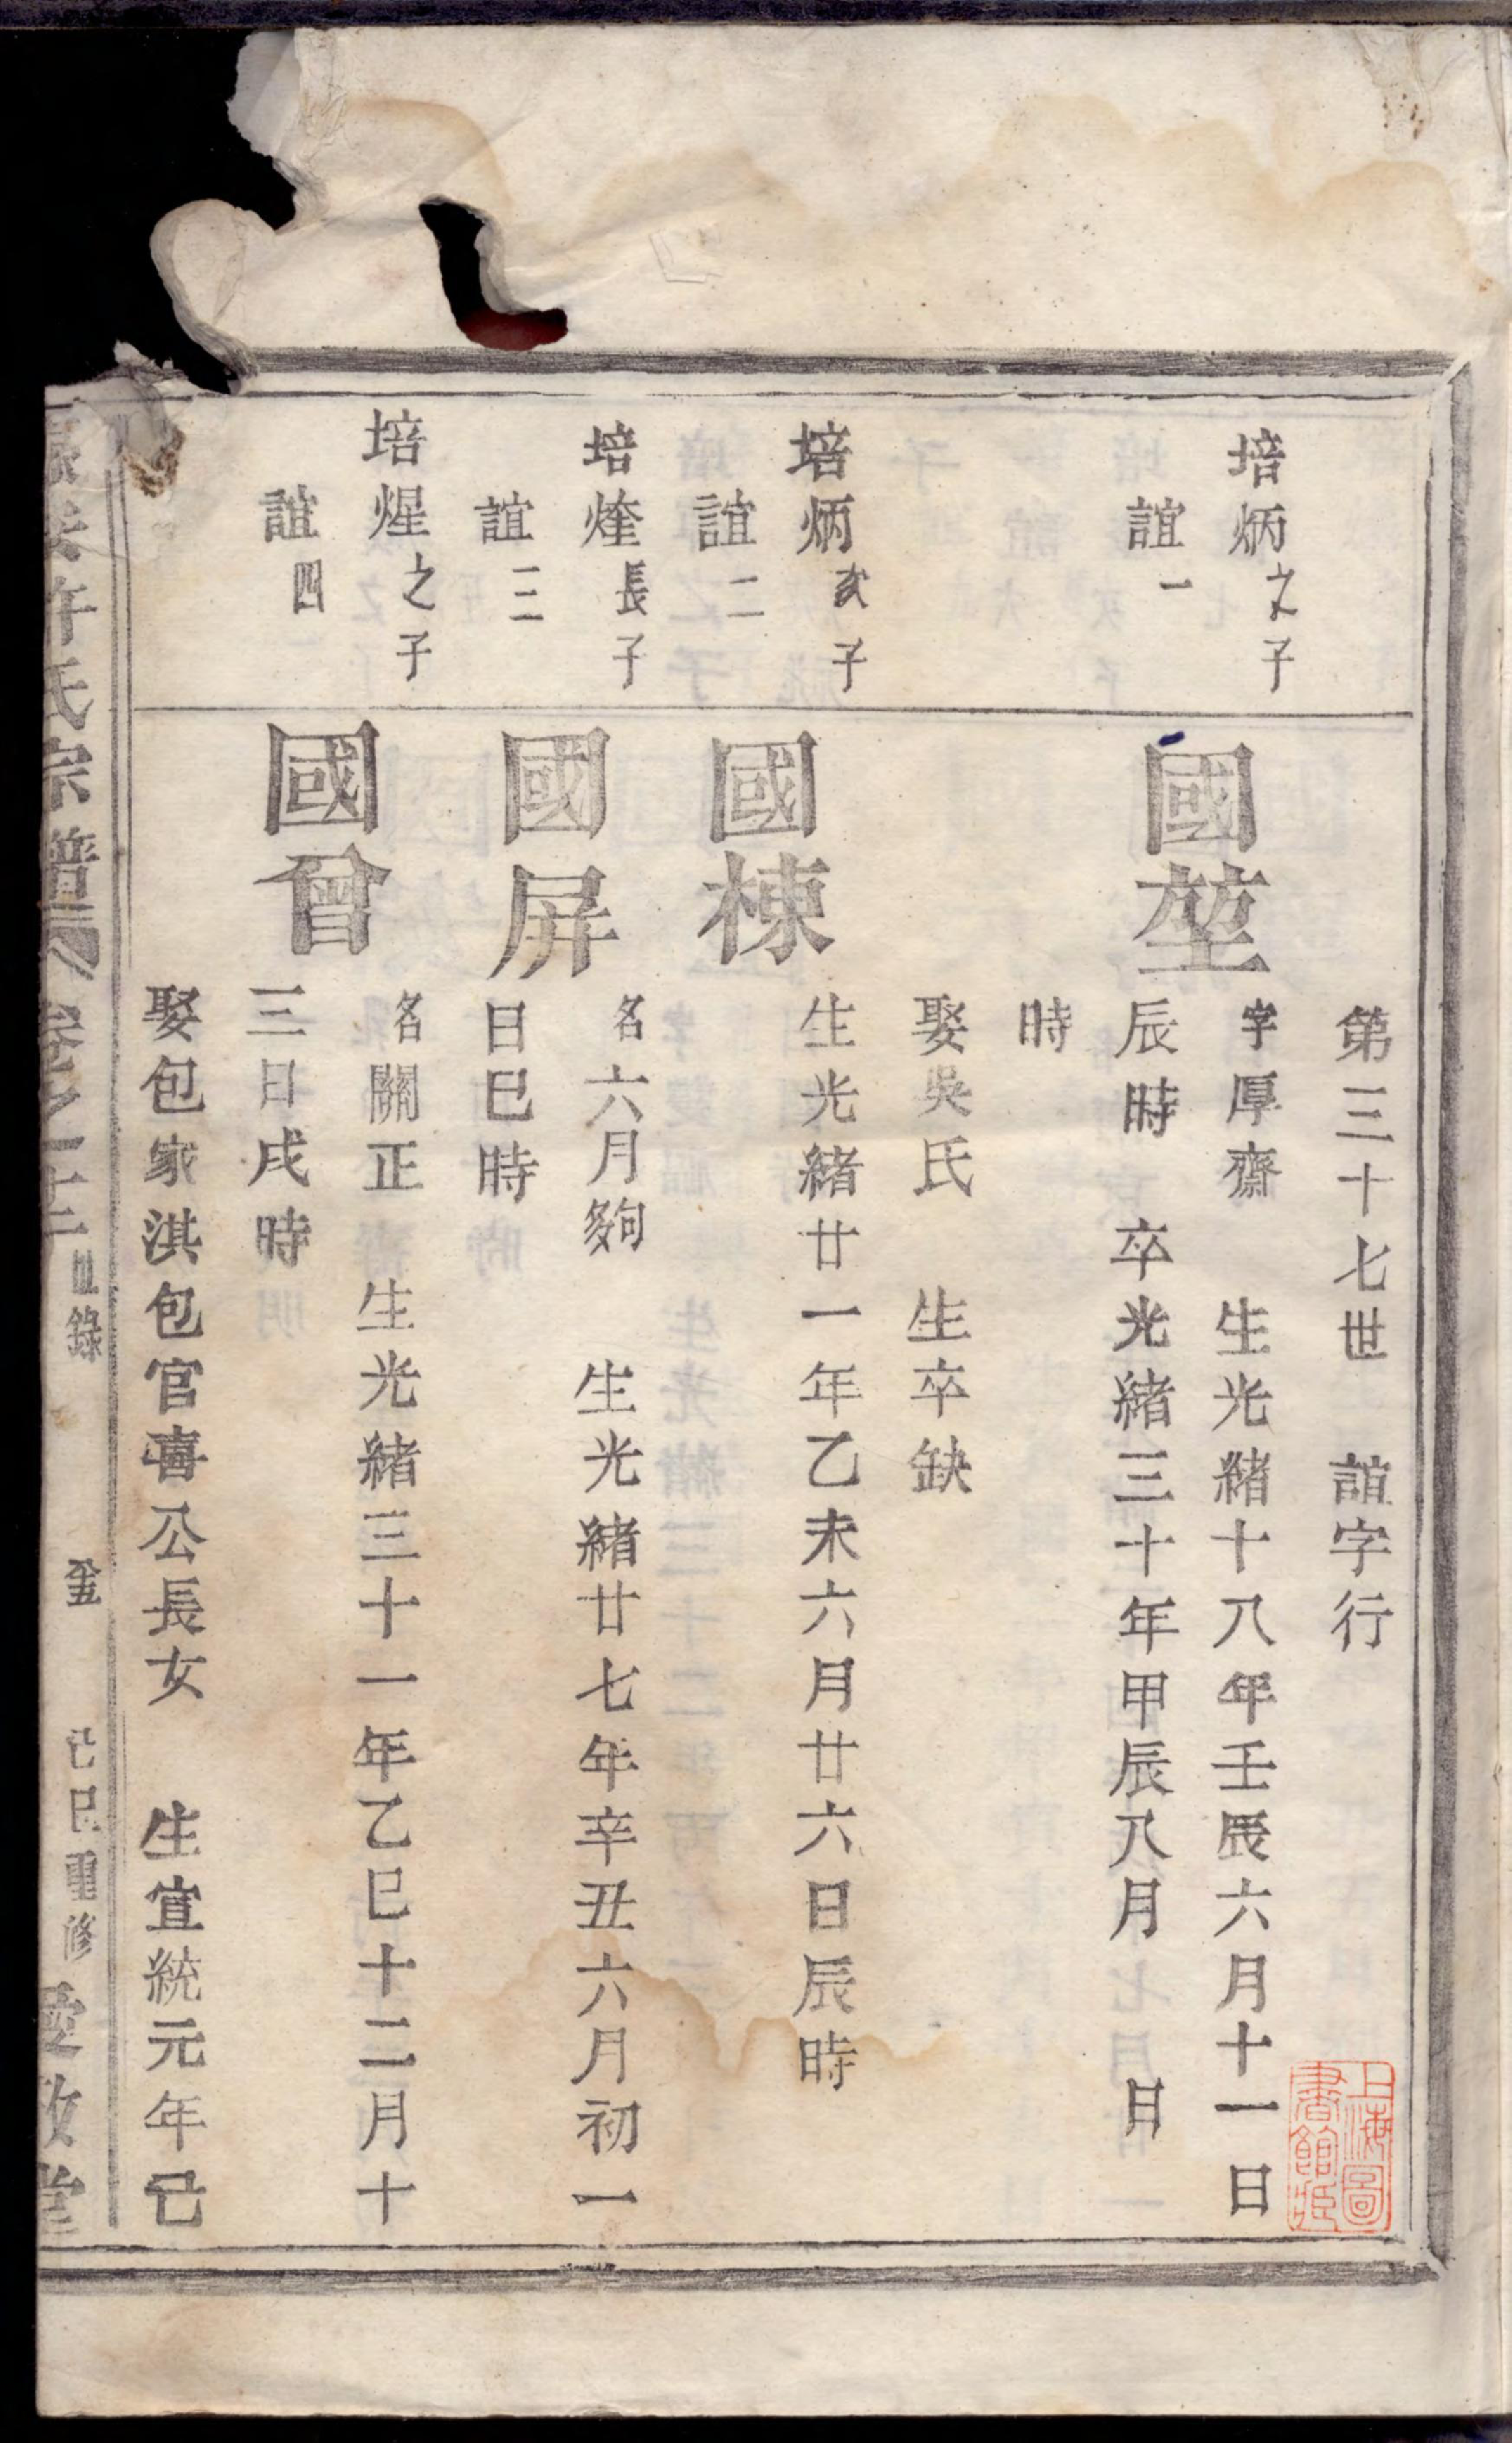 第三十七世　誼字行
培炳之子
誼一
國堃
字厚齋　生光緒十八年壬辰六月十一日
辰時　卒光緒三十年甲辰八月　日
時
娶吳氏　生卒缺
培炳次子
誼二
國棟
生光緒廿一年乙未六月廿六日辰時
培煃長子
誼三
國屏
名六月夠　生光緒廿七年辛丑六月初一
日巳時
培煋之子
誼四
國曾
名關正　生光緒三十一年乙巳十二月十
三日戌時
娶包家淇包官喜公長女　生宣統元年己
許氏宗譜　卷之十三　目錄　己巳重修　愛敬堂
上海圖書館藏